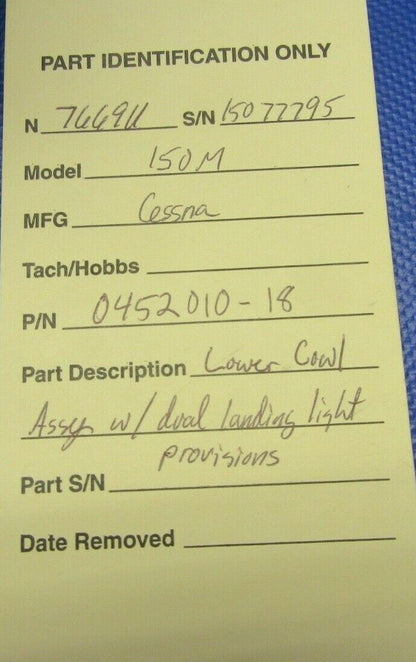 PART IDENTIFICATION ONLY
N 7669U S/N 15077795
Model 150M
MFG Cessna
Tach/Hobbs
P/N 0452010-18
Part Description Lower Cowl
Assy w/ dual landing light
provisions
Part S/N
Date Removed